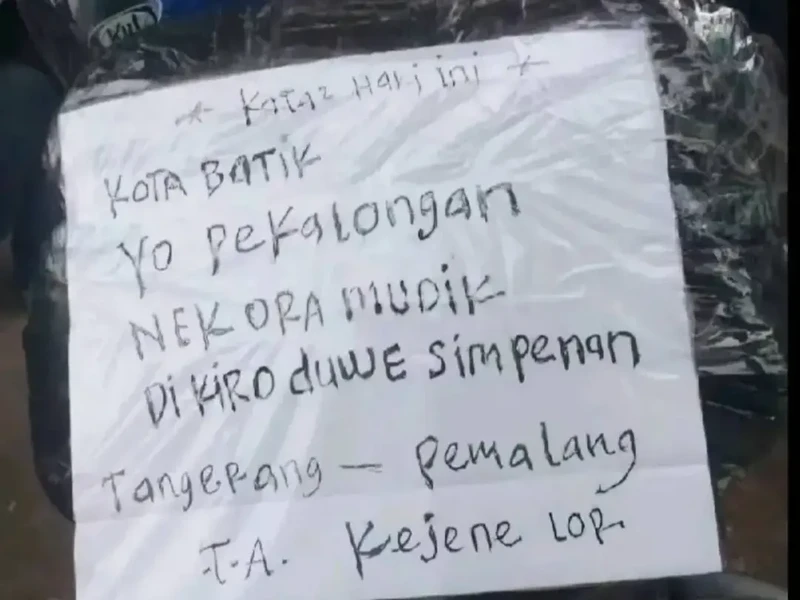 * Kata2 Hari ini *
KOTA BATIK
YO PEKALONGAN
NEK ORA MUDIK
DI KIRO duWE SimPENAN
TangeRang — Pemalang
T.A. Kejene LOR